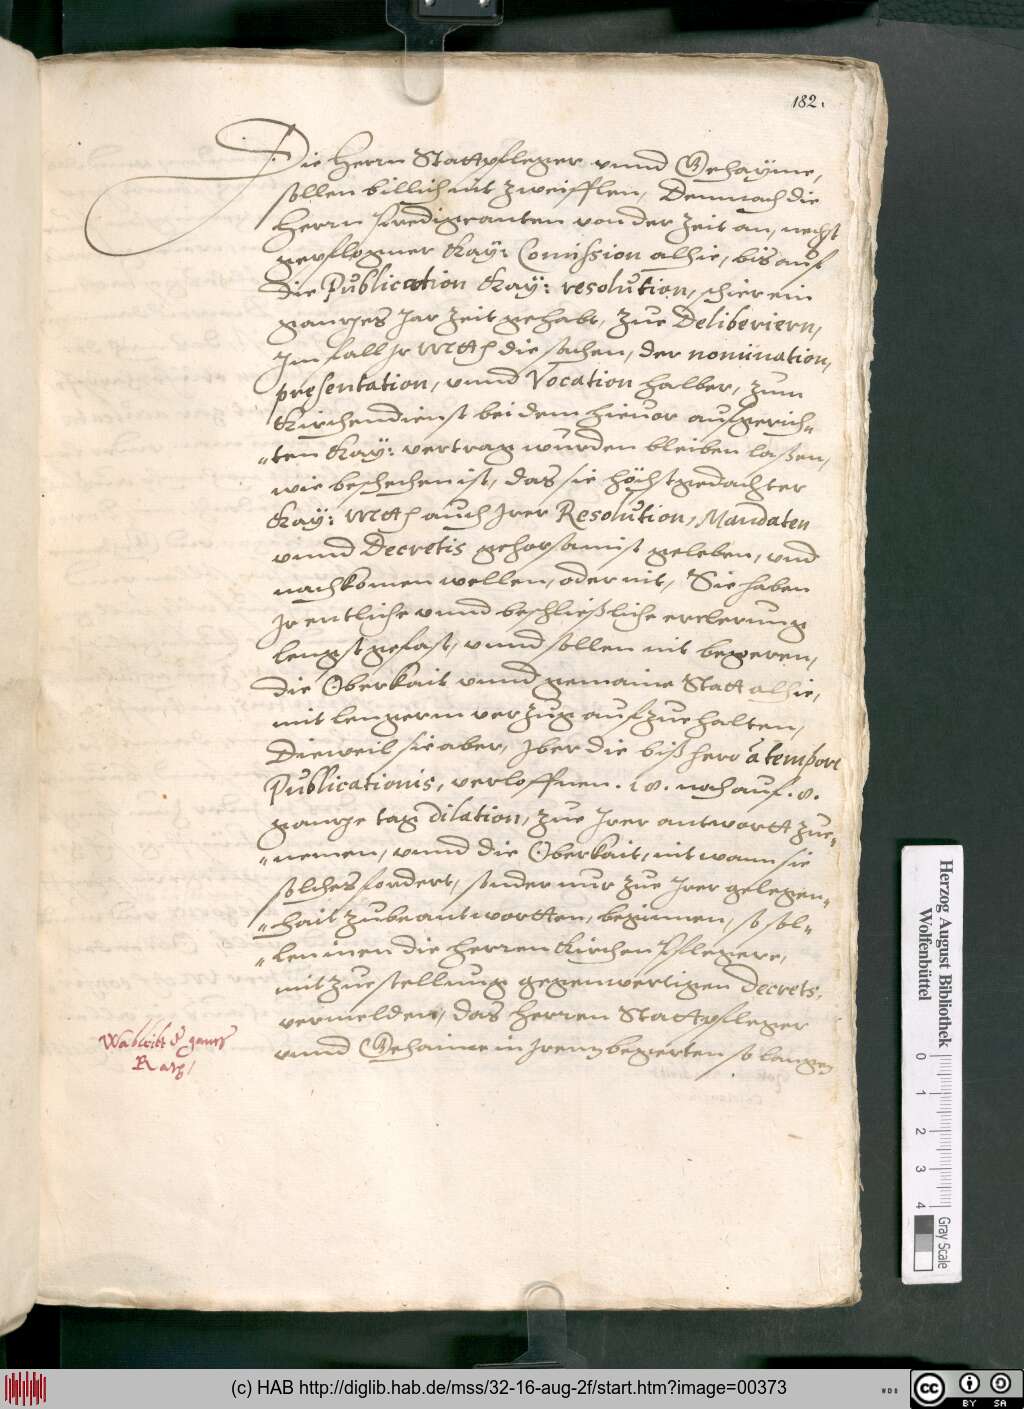 182.
Die Herrn Stattpfleger vnnd Gehayme,
sollen billich nit zweifflen, Demnach die
Herrn Predigcanten von der Zeit an, nechst
gepflogner Kay: Comission alhie, bis auf
die Publication Kay: resolution, schier ein
gantzes Jar Zeit gehabt, zue Deliberiern,
Im fall Ir Mtt die sachen, der nomination,
presentation, vnnd Vocation halber, zum
Kirchendienst bei dem hieuor aufgerich-
ten Kay: vertrag wurden bleiben laßen,
wie beschechen ist, das sie höchstgedachter
Kay: Mtt auch Irer Resolution, Mandaten
vnnd Decretis gehorsamist geleben, vnd
nachkomen wellen, oder nit, Sie haben
Ir entliche vnnd beschließliche erclerung
lengst gefast, vnnd sollen nit begeren,
die Oberkait vnnd gemaine Statt alhie,
mit lengerm verzug aufzuehalten,
Dieweil sie aber, Iber die biß herr à tempore
Publicationis, verloffnen . 18. noch auf .8.
gantze tag dilation, zue Irer antwortt zue-
nemen, vnnd die Oberkait, nit wann sie
solches fordert, sonder nur zue Irer gelegen-
hait zubeantwortten, beginnen, so sol-
len inen die Herren Kirchen Pflegere,
mit zuestellung gegenwertigen Decrets,
vermelden, das Herren Stattpfleger
vnnd Gehaime in Irem begerten so langen
Rath
Herzog August Bibliothek
Wolfenbüttel
0 1 2 3 4
Gray Scale
(c) HAB http://diglib.hab.de/mss/32-16-aug-2f/start.htm?image=00373
cc BY SA